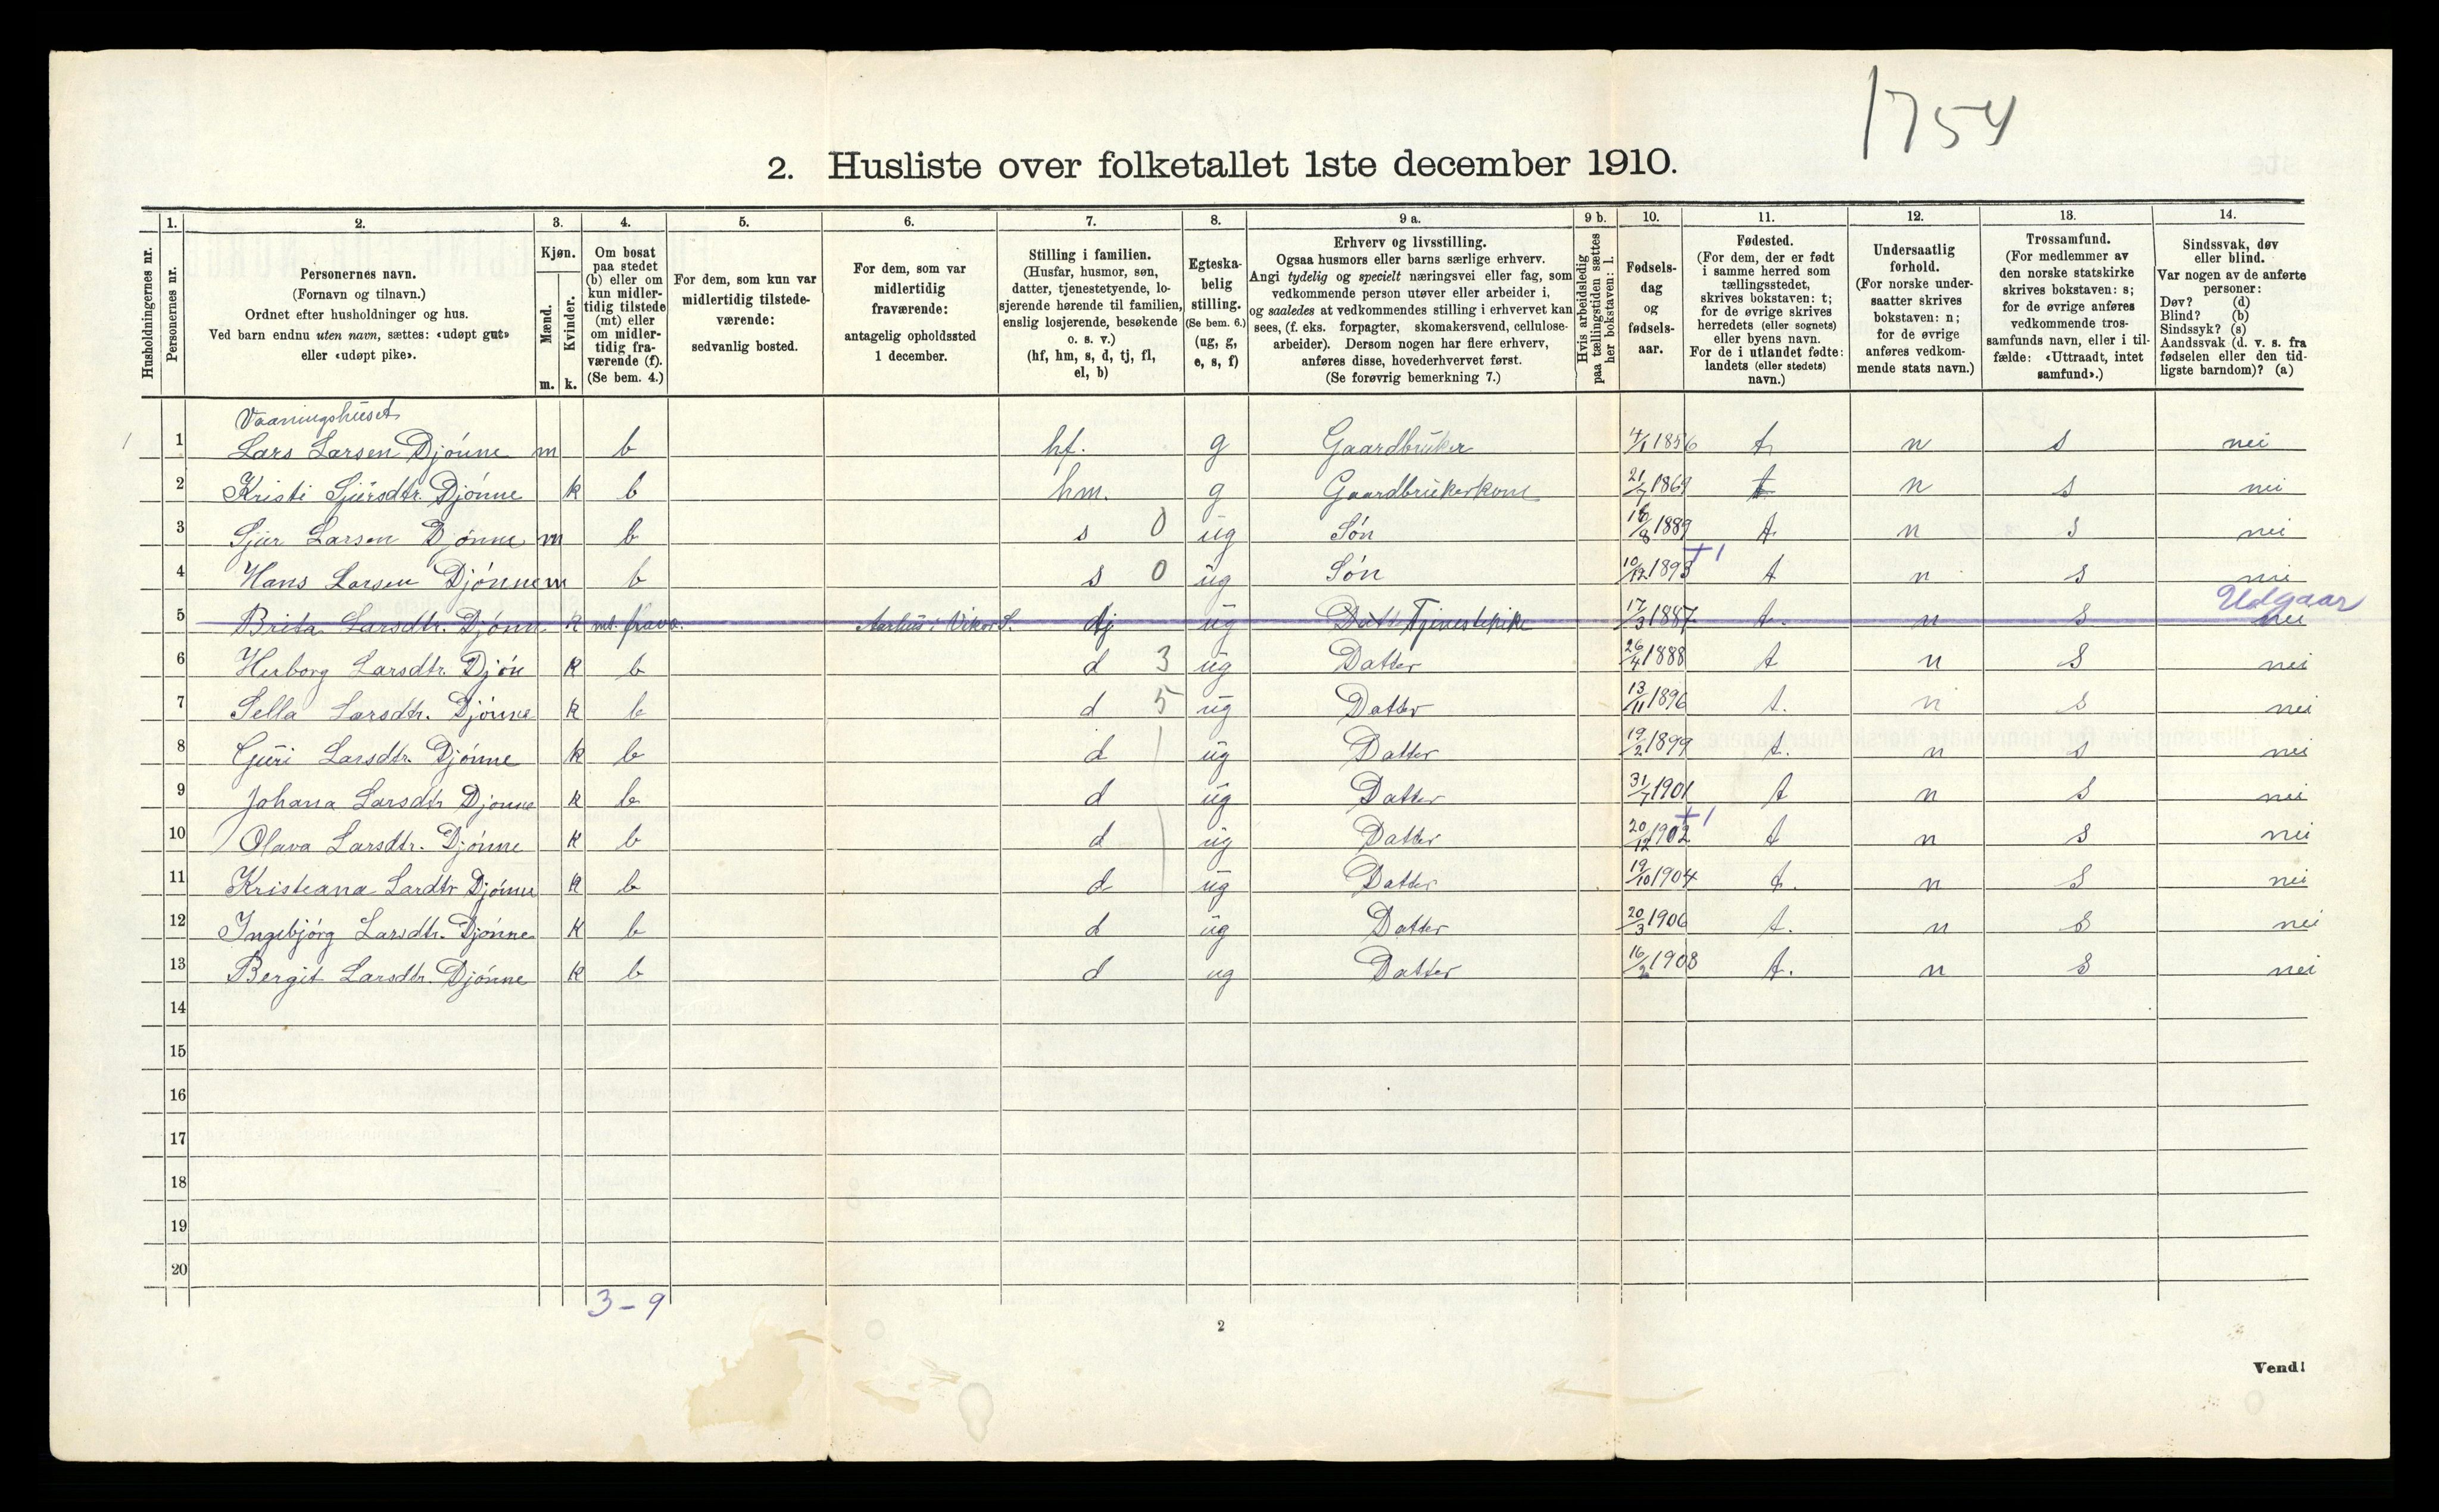 1754
2. Husliste over folketallet 1ste december 1910.
Husholdningernes nr.
1. Personernes nr.
2. Personernes navn. (Fornavn og tilnavn.) Ordnet efter husholdninger og hus. Ved barn endnu uten navn, sættes: «udøpt gut» eller «udøpt pike».
3. Kjøn. Mænd. m. Kvinder. k.
4. Om bosat paa stedet (b) eller om kun midlertidig tilstede (mt) eller om midlertidig fraværende (f). (Se bem. 4.)
5. For dem, som kun var midlertidig tilstedeværende: sedvanlig bosted.
6. For dem, som var midlertidig fraværende: antagelig opholdssted 1 december.
7. Stilling i familien. (Husfar, husmor, søn, datter, tjenestetyende, losjerende hørende til familien, enslig losjerende, besøkende o. s. v.) (hf, hm, s, d, tj, fl, el, b)
8. Egteskabelig stilling. (Se bem. 6.) (ug, g, e, s, f)
9 a. Erhverv og livsstilling. Ogsaa husmors eller barns særlige erhverv. Angi tydelig og specielt næringsvei eller fag, som vedkommende person utøver eller arbeider i, og saaledes at vedkommendes stilling i erhvervet kan sees, (f. eks. forpagter, skomakersvend, cellulosearbeider). Dersom nogen har flere erhverv, anføres disse, hovederhvervet først. (Se forøvrig bemerkning 7.)
9 b. Hvis arbeidsledig paa tællingstiden sættes her bokstaven: l.
10. Fødselsdag og fødselsaar.
11. Fødested. (For dem, der er født i samme herred som tællingsstedet, skrives bokstaven: t; for de øvrige skrives herredets (eller sognets) eller byens navn. For de i utlandet fødte: landets (eller stedets) navn.)
12. Undersaatlig forhold. (For norske undersaatter skrives bokstaven: n; for de øvrige anføres vedkommende stats navn.)
13. Trossamfund. (For medlemmer av den norske statskirke skrives bokstaven: s; for de øvrige anføres vedkommende trossamfunds navn, eller i tilfælde: «Uttraadt, intet samfund».)
14. Sindssvak, døv eller blind. Var nogen av de anførte personer: Døv? (d) Blind? (b) Sindssyk? (s) Aandssvak (d. v. s. fra fødselen eller den tidligste barndom)? (a)
Vaaningshuset
1 1 Lars Larsen Djønne m b hf. g Gaardbruker 4/1 1856 t. n s nei
2 Kristi Sjursdtr. Djønne k b hm. g Gaardbrukerkone 21/7 1869 t n s nei
3 Sjur Larsen Djønne m b s 0 ug Søn 18/8 1889 t. n s nei
4 Hans Larsen Djønne m b s 0 ug Søn 10/12 1893 +1 t n s nei
Udgaar
5 Brita Larsdtr. Djønn k mt. frav. Aarhus i Vikør S. tj ug Tjenestepike 17/3 1887 t. n s nei
6 Herborg Larsdtr. Djøn k b d 3 ug Datter 26/4 1888 t n s nei
7 Sella Larsdtr. Djønne k b d 5 ug Datter 13/11 1896 t. n s nei
8 Guri Larsdtr. Djønne k b d ug Datter 19/2 1899 t. n s nei
9 Johana Larsdtr Djønne k b d ug Datter 31/7 1901 t n s nei
10 Olava Larsdtr. Djønne k b d ug Datter 20/12 1902 +1 t n s nei
11 Kristeana Lardtr Djønne k b d ug Datter 19/10 1904 t. n s nei
12 Ingebjørg Larsdtr. Djønne k b d ug Datter 20/3 1906 t. n s nei
13 Bergit Larsdtr. Djønne k b d ug Datter 16/2 1908 t. n s nei
14
15
16
17
18
19
20
3 - 9
2
Vend!